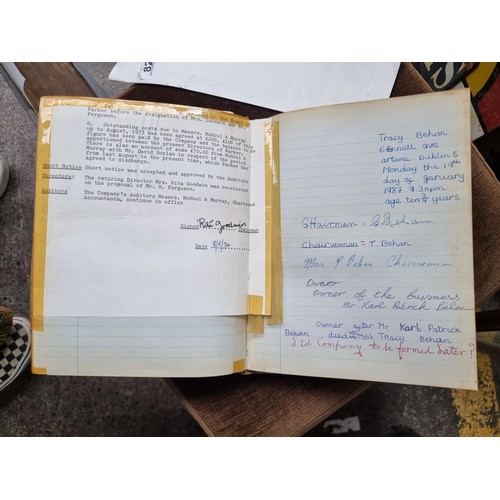 Parker before the resignation of Mrs.
Ferguson.
8. Outstanding costs due to Messrs. McNoul & Murray
up to August, 1973 has been agreed at £200. £100 of this
figure has been paid by the Company and the balance
apportioned between the present Directors and Parker
There is also an account of some £70.00 from McNoul &
Murray with Mr. David Boylan in respect of the period
from last August to the present time, which Parker has
agreed to discharge.
Short Notice Short notice was accepted and approved by the Auditors
Directors: The retiring Director Mrs. Rita Goodwin was re-elected
on the proposal of Mr. H. Ferguson.
Auditors The Company's Auditors Messrs. McNoul & Murray, Chartered
Accountants, continue in office
Signed Rita Goodwin
Chairman
Date 8/5/74
Tracy Behan
artane Dublin 5
Monday the 19th
day of january
1987 9.30pm
age ten years
CHairman = Behan
Chairwoman = T. Behan
Mrs P Behan Chairwoman
Owner
Owner of the business
Mr Karl Patrick Behan
Owner after Mr Karl Patrick
Behan died Miss Tracy Behan
Ltd Company to be formed later?
82